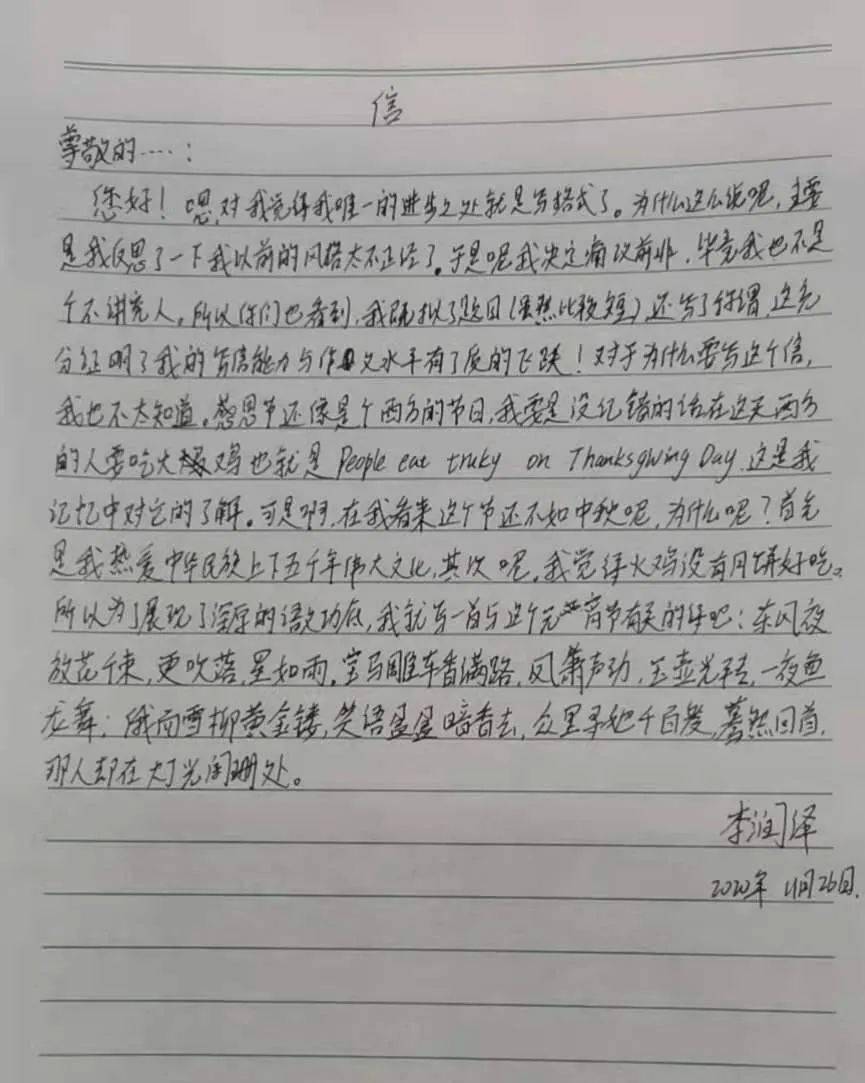 信
尊敬的……：
您好！嗯,对我觉得我唯一的进步之处就是写格式了。为什么这么说呢，主要
是我反思了一下我以前的风格太不正经了。于是呢我决定痛改前非，毕竟我也不是
个不讲究人。所以你们也看到，我既拟了题目(虽然比较短)，还写了称谓，这充
分证明了我的写信能力与作文水平有了质的飞跃！对于为什么要写这个信，
我也不太知道。感恩节还像是个西方的节日，我要是没记错的话在这天西方
的人要吃火鸡也就是People eat truky on Thanksgiwing Day.这是我
记忆中对它的了解。可是啊，在我看来这个节还不如中秋呢，为什么呢？首先
是我热爱中华民族上下五千年伟大文化，其次呢，我觉得火鸡没有月饼好吃。
所以为了展现了深厚的语文功底，我就写一首与这个元宵节有关的词吧：东风夜
放花千束，更吹落，星如雨，宝马雕车香满路，凤箫声动，玉壶光转，一夜鱼
龙舞；俄而雪柳黄金镂，笑语盈盈暗香去，众里寻她千百度，蓦然回首，
那人却在灯光阑珊处。
李润泽
2020年 11月26日.